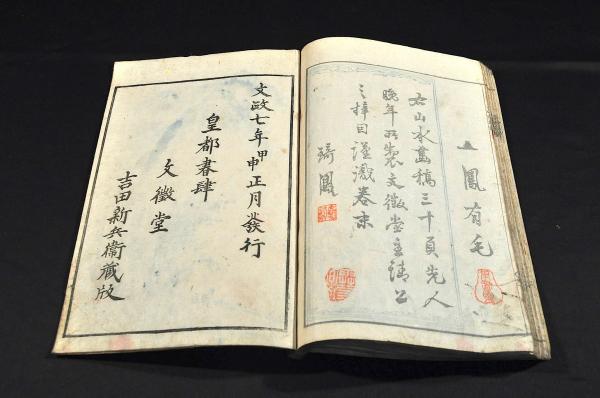 鳳有毛
右山水畫稿三十頁先人
晩年所製文徴堂主請公
之梓因謹識卷末
琦鳳
文政七年甲申正月發行
皇都書肆
文徴堂
吉田新兵衞藏版